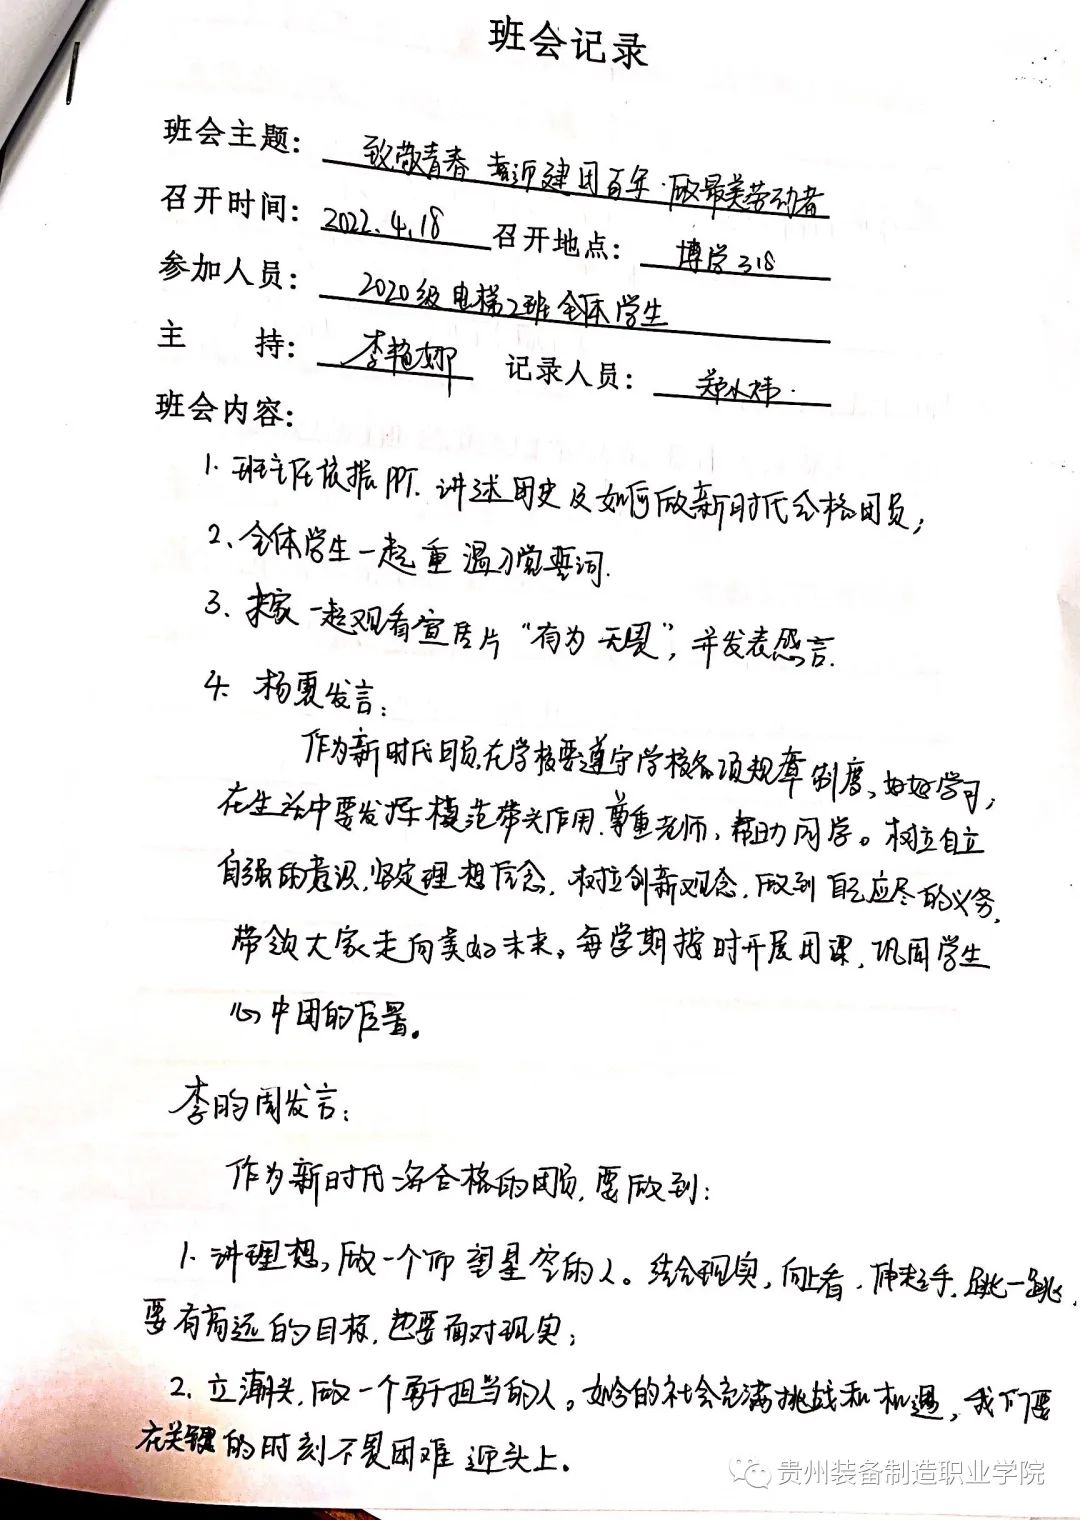 班会记录
班会主题：致敬青春 喜迎建团百年·做最美劳动者
召开时间：2022.4.18 召开地点：博学318
参加人员：2020级电梯2班全体学生
主 持：李艳娜 记录人员：郑水祎.
班会内容：
1. 班主任依据PPT. 讲述团史及如何做新时代合格团员；
2、全体学生一起重温入党誓词.
3、大家一起观看宣传片“有为无畏”，并发表感言.
4. 杨夏发言：
作为新时代团员，在学校要遵守学校各项规章制度、好好学习，
在生活中要发挥模范带头作用.尊重老师，帮助同学。树立自立
自强的意识.坚定理想信念，树立创新观念.做到自己应尽的义务，
带领大家走向美好未来。每学期按时开展团课，巩固学生
心中团的位置。
李昀周发言：
作为新时代一名合格的团员，要做到：
1. 讲理想，做一个仰望星空的人。结合现实，向上看.伸起手.跳一跳，
要有高远的目标，也要面对现实；
2. 立潮头，做一个勇于担当的人。如今的社会充满挑战和机遇，我们要
在关键的时刻不畏困难 迎头上。
贵州装备制造职业学院